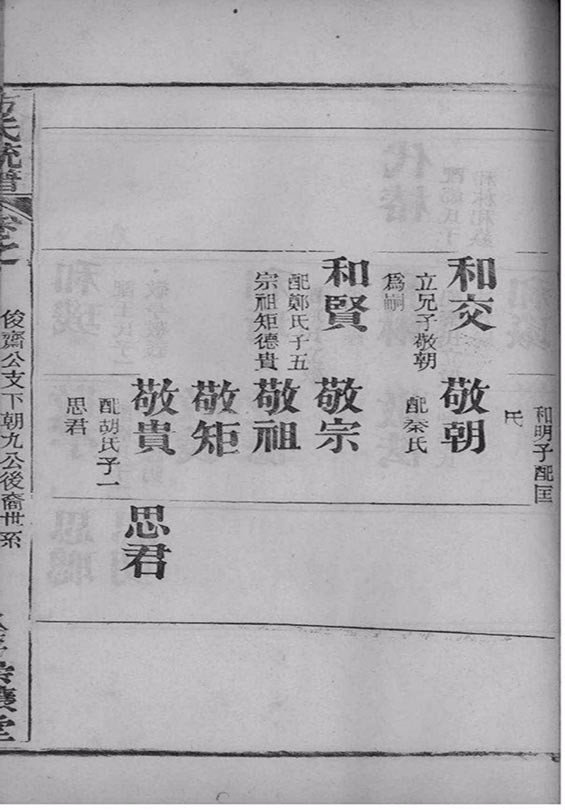 和明子配匡
氏
和交
立兄子敬朝
爲嗣
敬朝
配秦氏
和賢
配鄭氏子五
宗祖矩德貴
敬宗
敬祖
敬矩
敬貴
配胡氏子一
思君
思君
氏統譜
俊齋公支下朝九公後裔世系